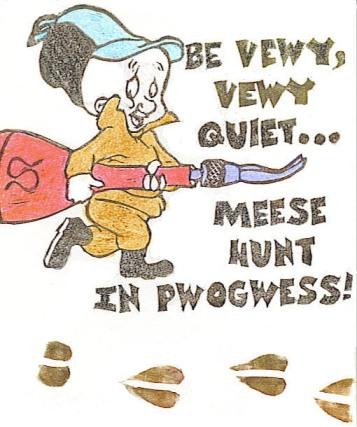 BE VEWY,
VEWY
QUIET...
MEESE
HUNT
IN PWOGWESS!